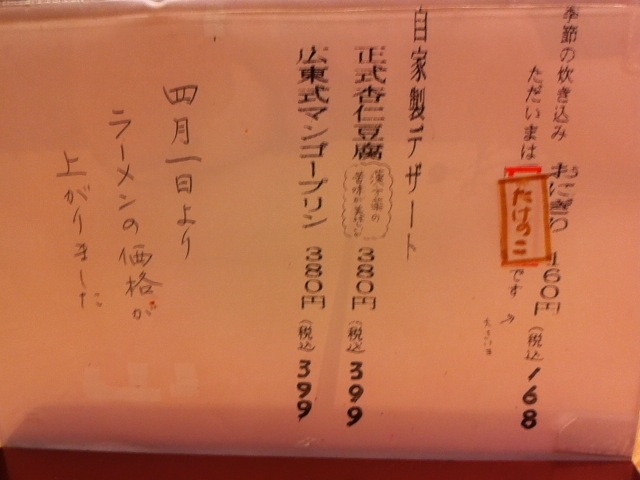 季節の炊き込み おにぎり 160円 (税込) 168
ただいまは たけのこ です
自家製デザート
正式杏仁豆腐 漢方薬の 380円 (税込) 399
広東式マンゴープリン 380円 (税込) 399
四月一日より
ラーメンの価格が
上がりました